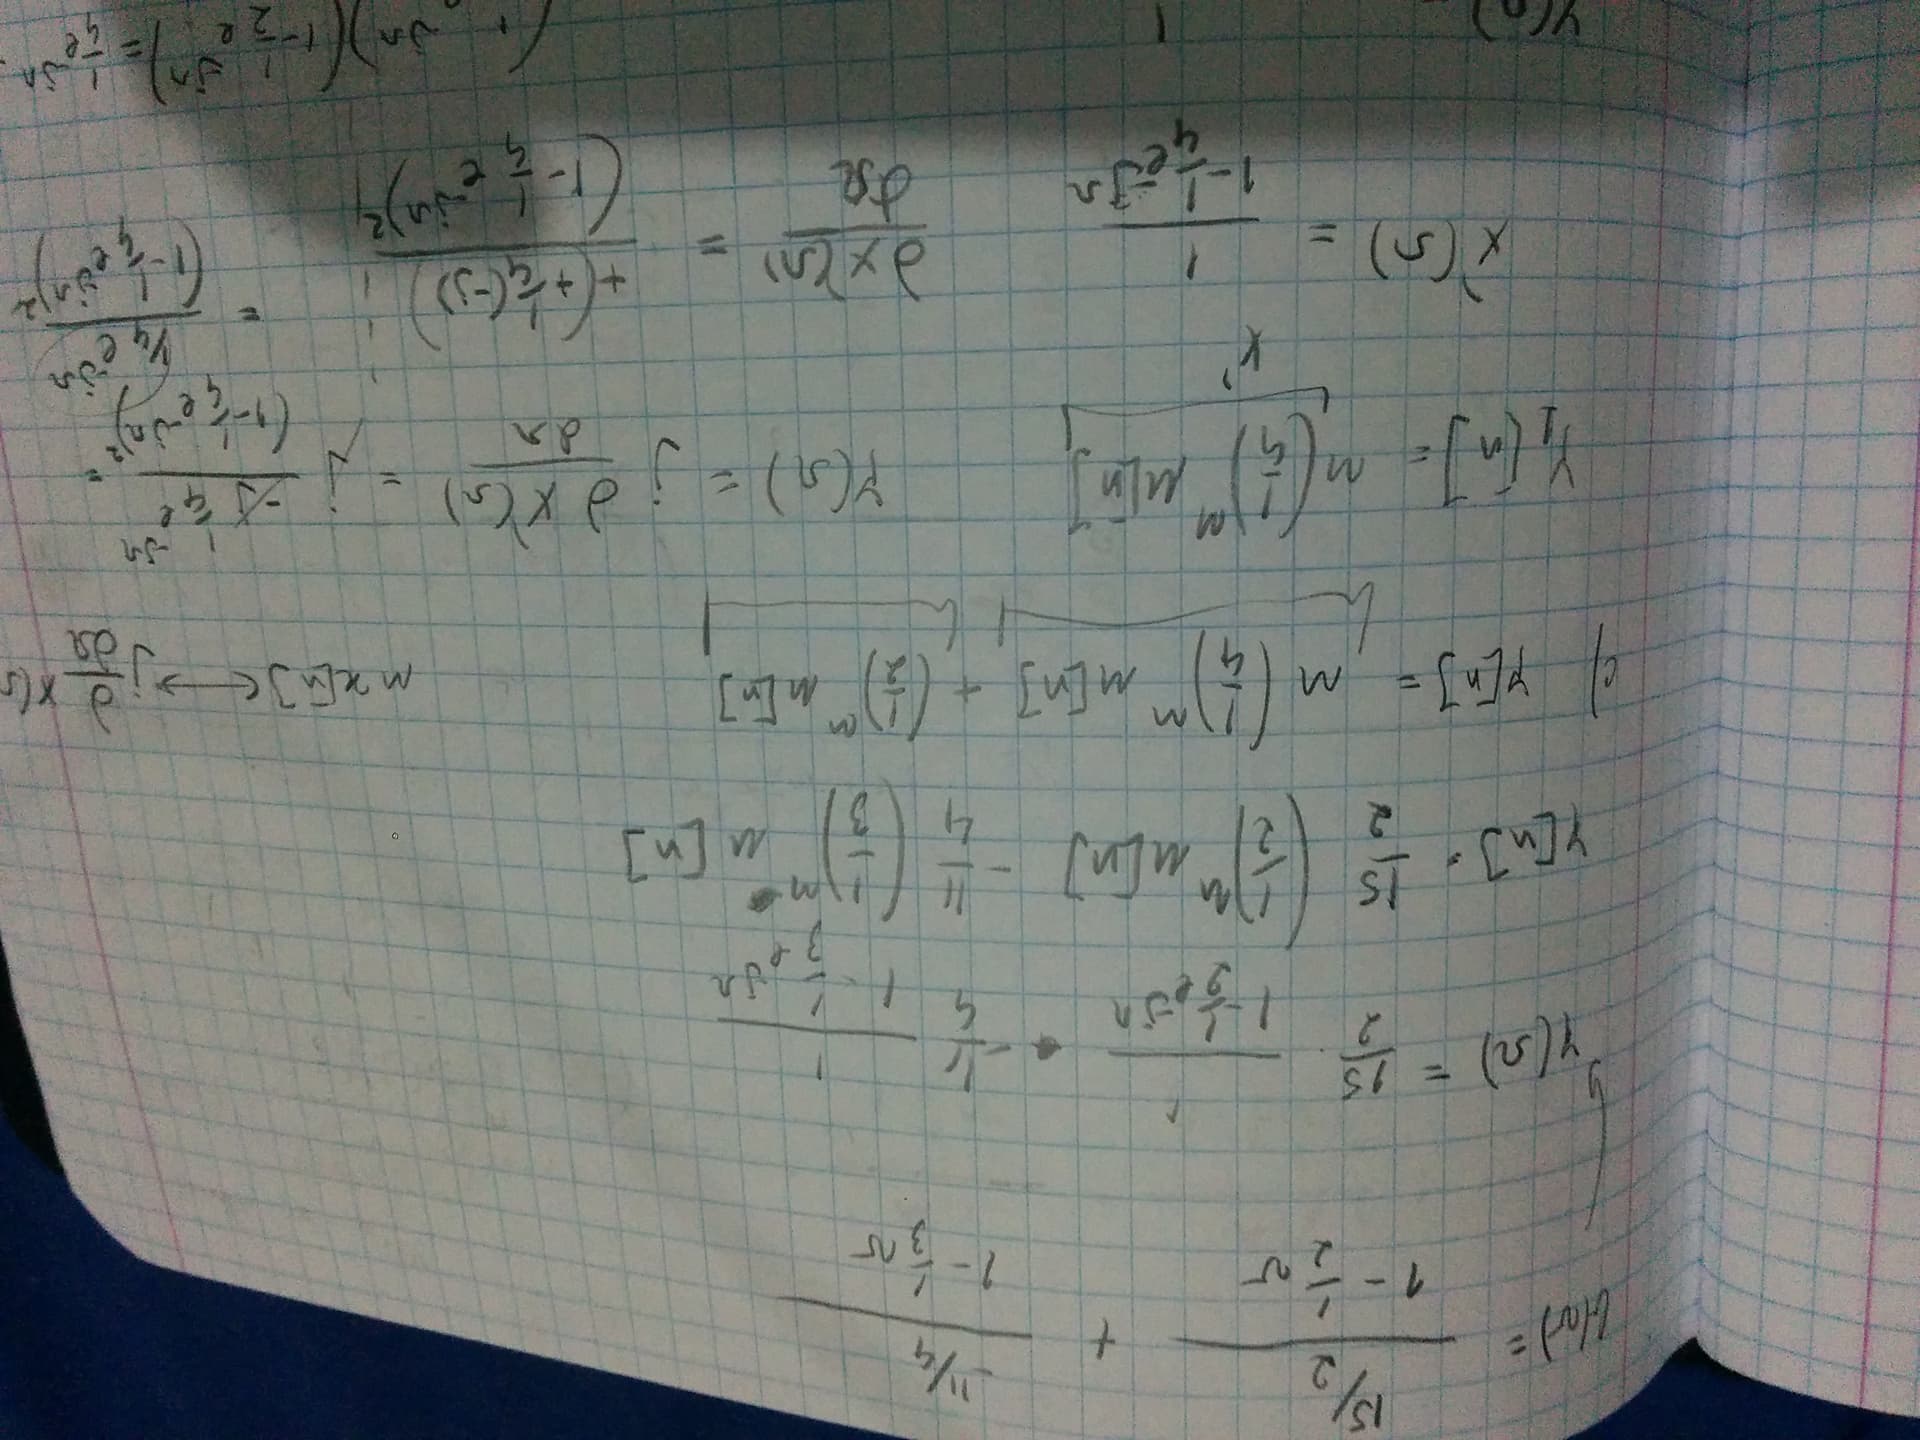 = 15/2 / (1 - 1/2 v) + -11/4 / (1 - 1/3 v)
Y(Ω) = 15/2 · 1 / (1 - 1/2 e^-jΩ) - 11/4 1 / (1 - 1/3 e^jΩ)
Y[n] = 15/2 (1/2)^n u[n] - 11/4 (1/3)^n u[n]
c) Y[n] = n (1/4)^n u[n] + (1/2)^n u[n] n x[n] ⟷ j ∂/∂Ω X(
Y1[n] = n (1/4)^n u[n] Y(Ω) = j ∂X'(Ω)/∂Ω = j -j 1/4 e^-jΩ / (1 - 1/4 e^-jΩ)^2 =
X'
= 1/4 e^-jΩ / (1 - 1/4 e^-jΩ)^2
X'(Ω) = 1 / (1 - 1/4 e^-jΩ) ∂X'(Ω)/∂Ω = +(+1/4(-j)) / (1 - 1/4 e^-jΩ)^2
(1 - 1/2 e^-jΩ) = 1/4 e^-jΩ
Y(Ω) = 1